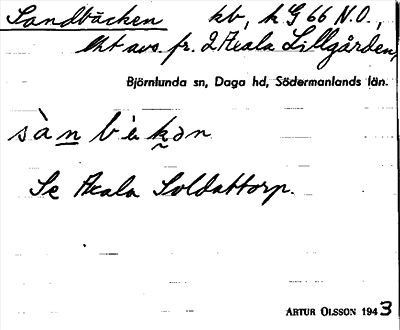 Sandbäcken kb, h G 66 N.O.,
avs. fr. 2 Åkala Lillgården,
Björnlunda sn, Daga hd, Södermanlands län.
sàn bèkən
Se Åkala Soldattorp.
ARTUR OLSSON 1943